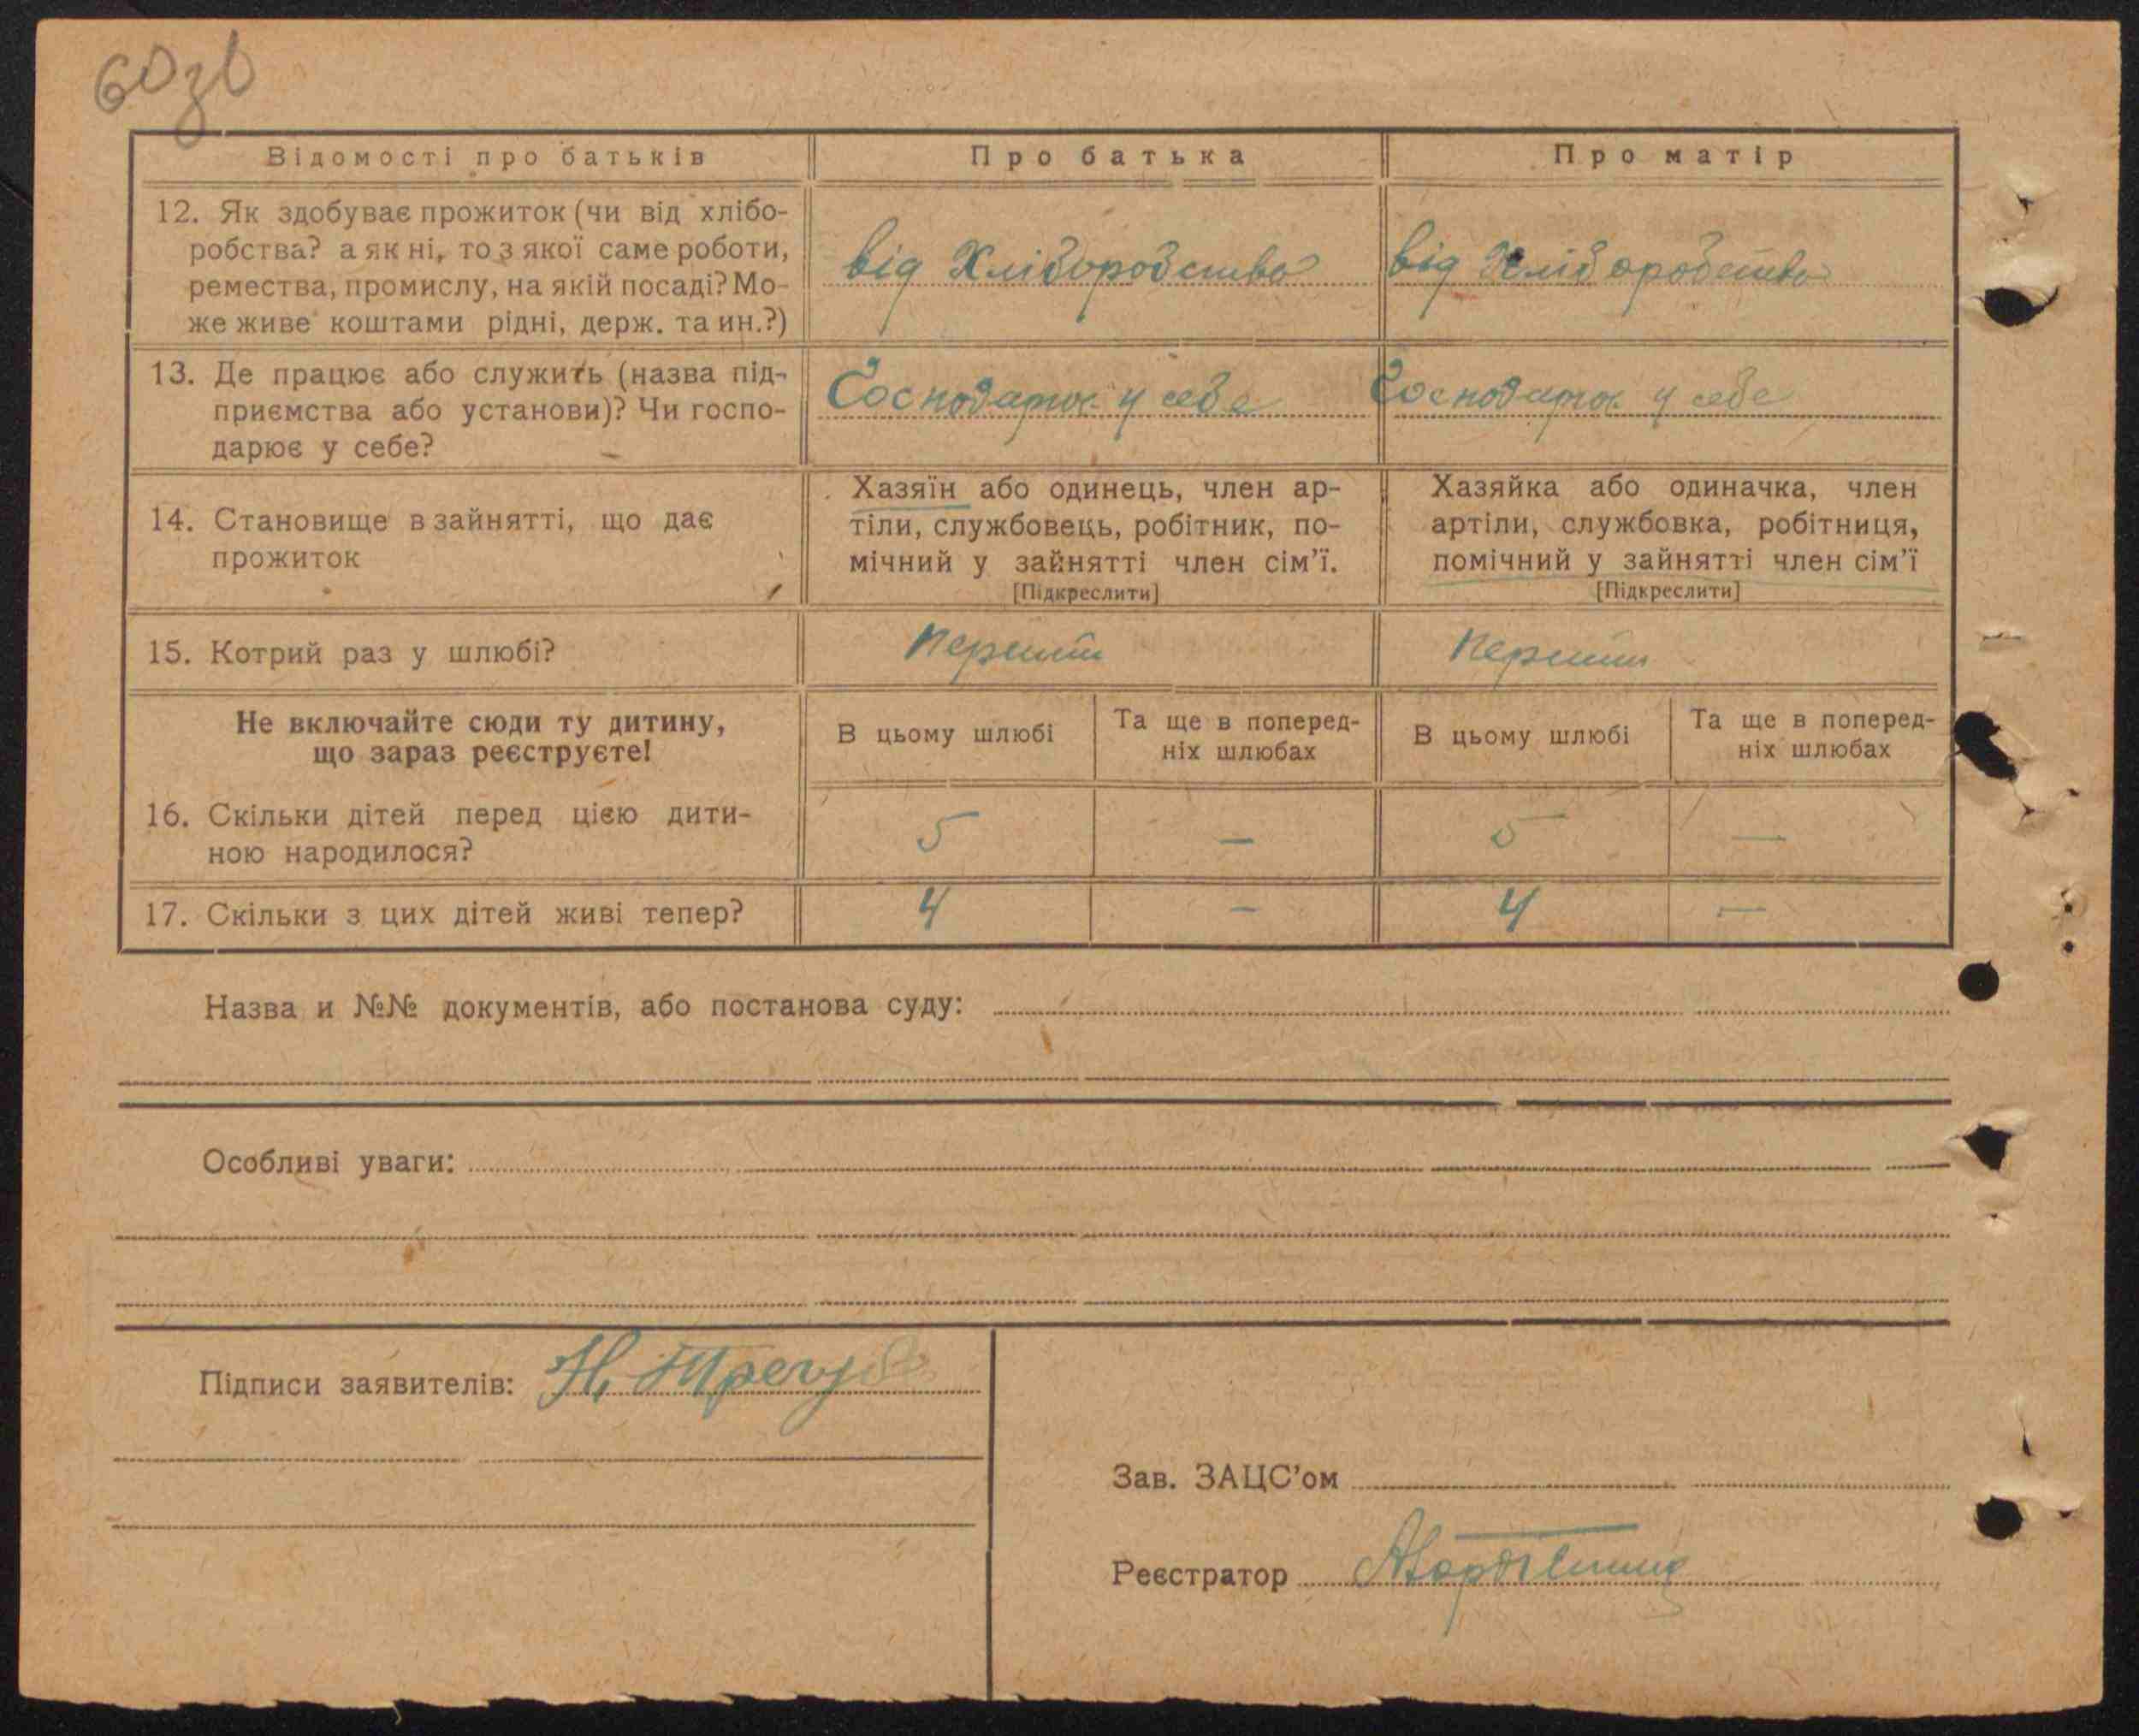 60зв
Відомості про батьків
Про батька
Про матір
12. Як здобуває прожиток (чи від хлібо-
робства? а як ні, то з якої саме роботи,
ремества, промислу, на якій посаді? Мо-
же живе коштами рідні, держ. та ин.?)
від Хліборобства
від Хліборобства
13. Де працює або служить (назва під-
приємства або установи)? Чи госпо-
дарює у себе?
у себе
у себе
14. Становище в зайнятті, що дає
прожиток
Хазяїн або одинець, член ар-
тіли, службовець, робітник, по-
мічний у зайнятті член сім’ї.
[Підкреслити]
Хазяйка або одиначка, член
артіли, службовка, робітниця,
помічний у зайнятті член сім’ї
[Підкреслити]
15. Котрий раз у шлюбі?
Перший
Перший
Не включайте сюди ту дитину,
що зараз реєструєте!
В цьому шлюбі
Та ще в поперед-
ніх шлюбах
В цьому шлюбі
Та ще в поперед-
ніх шлюбах
16. Скільки дітей перед цією дити-
ною народилося?
5
—
5
—
17. Скільки з цих дітей живі тепер?
4
—
4
—
Назва и №№ документів, або постанова суду:
Особливі уваги:
Підписи заявителів: Н.
Зав. ЗАЦС’ом
Реєстратор